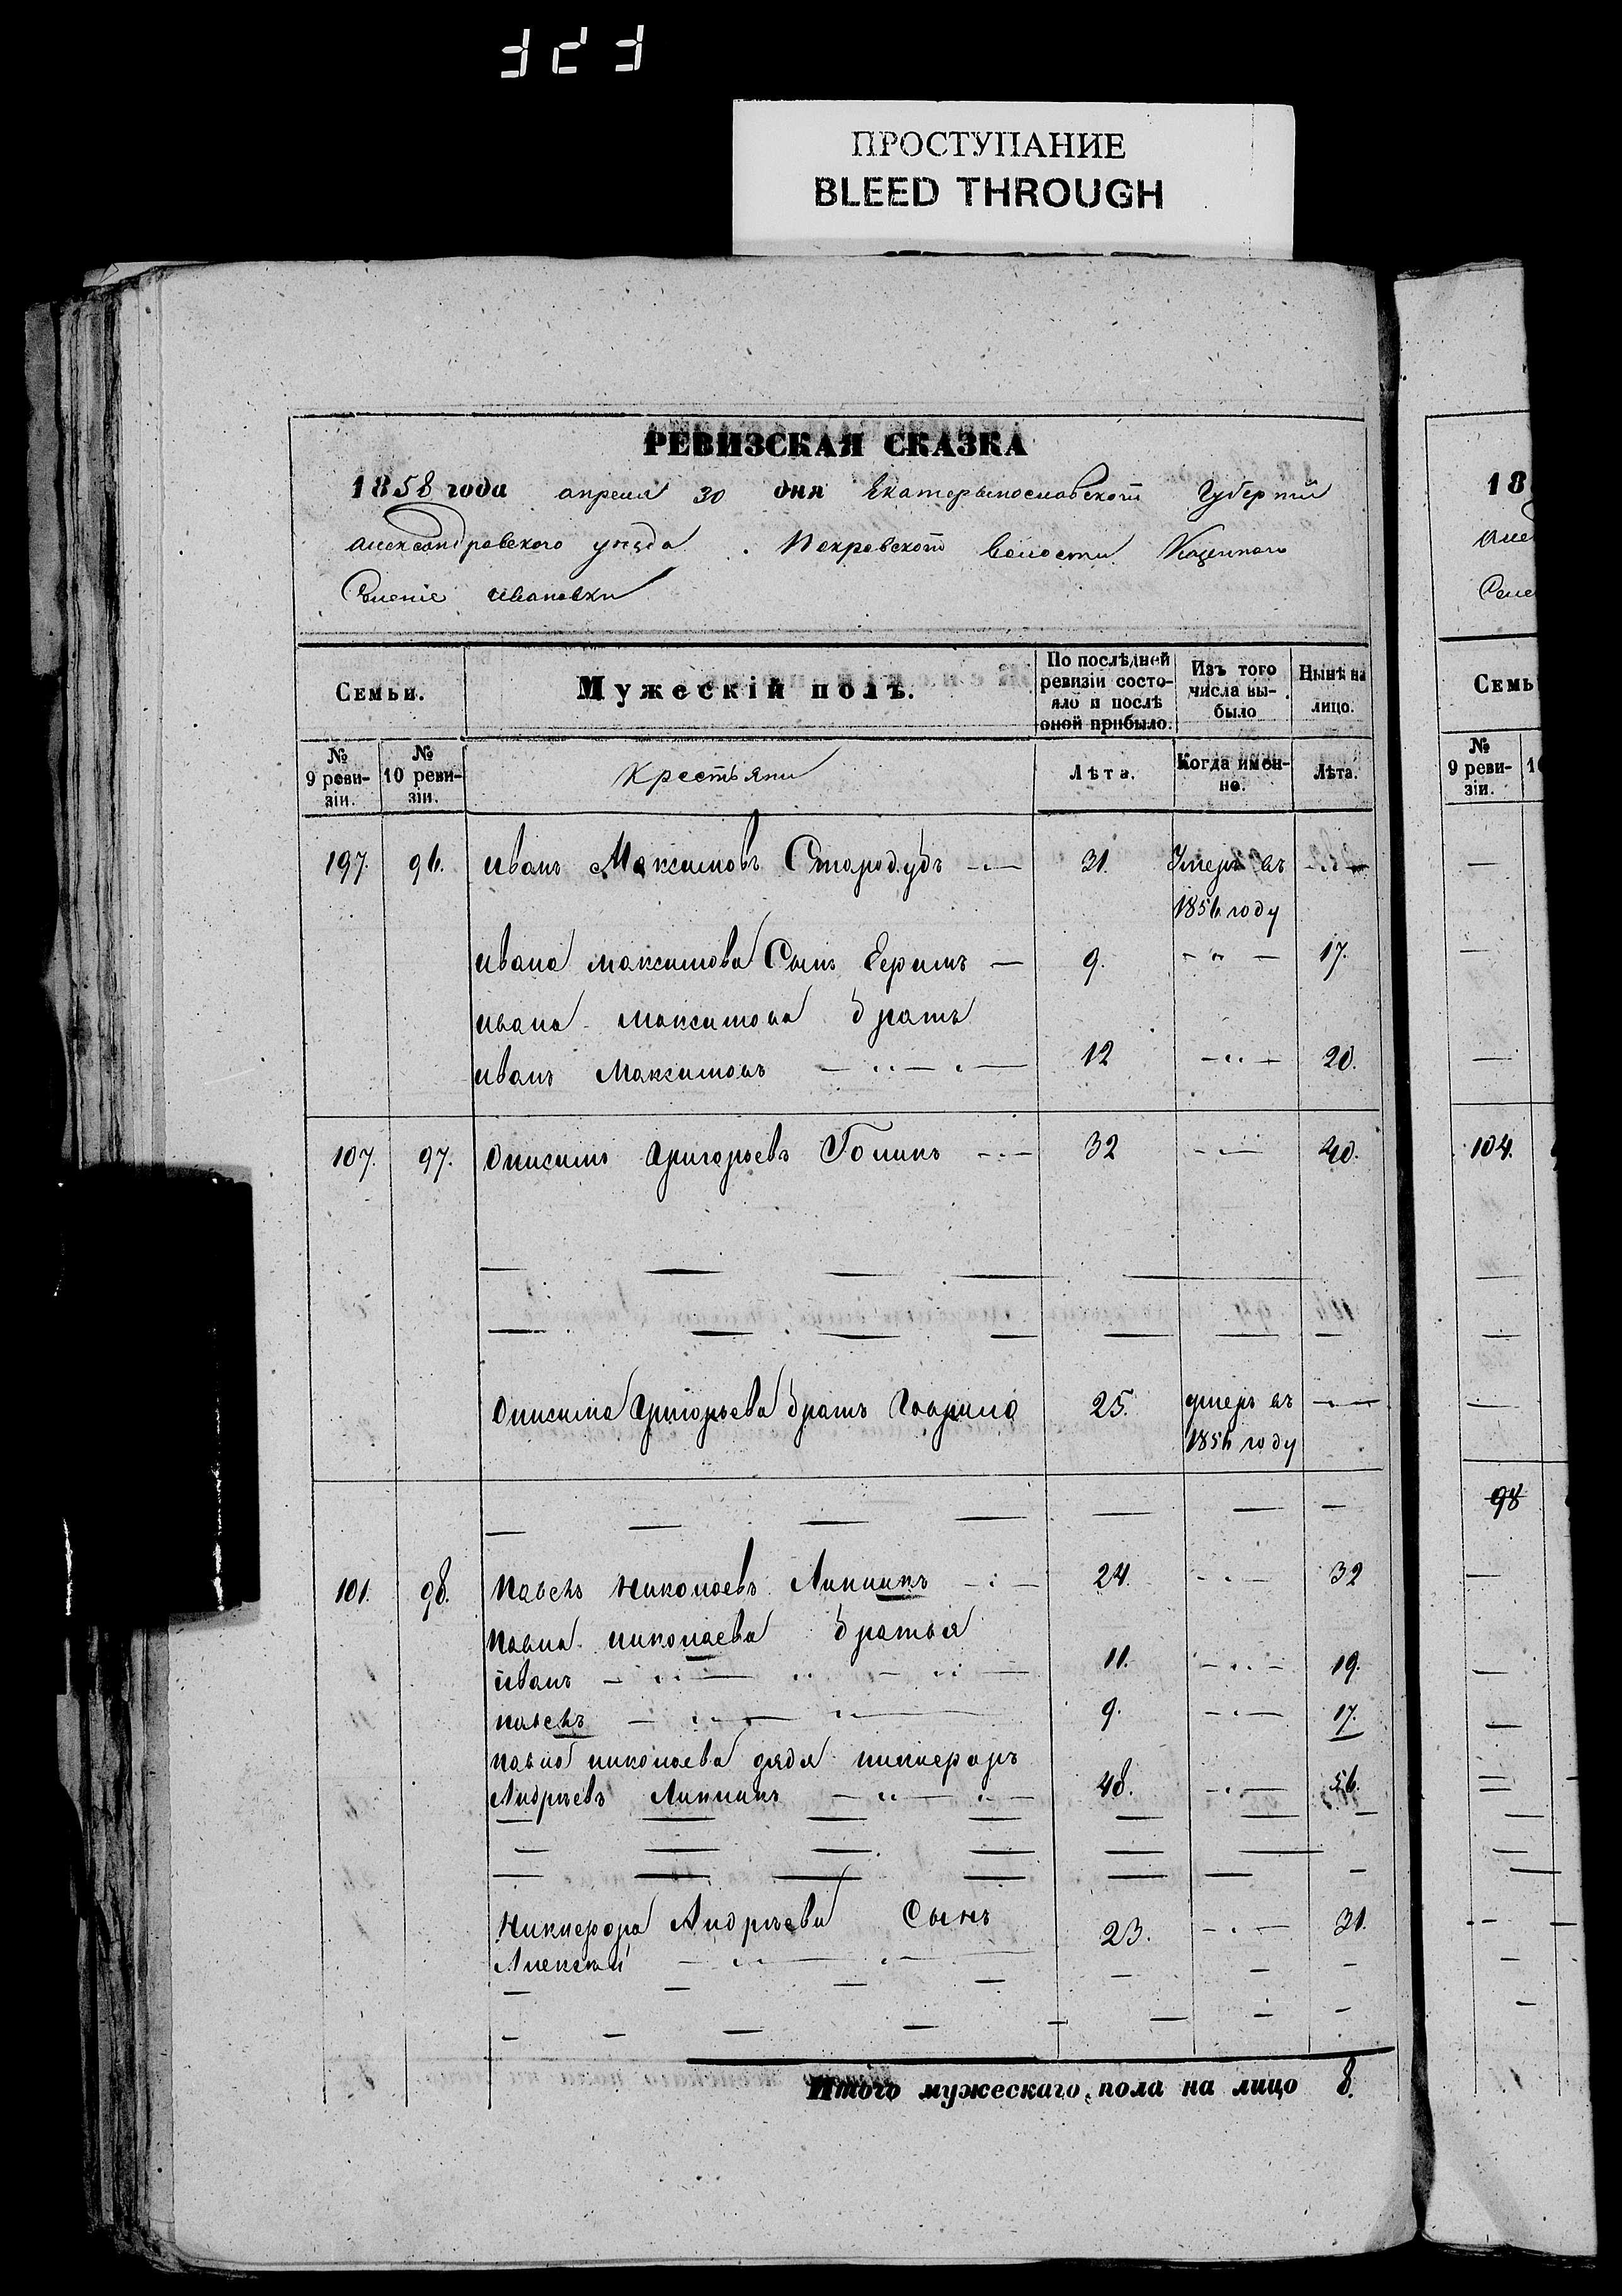 323
ПРОСТУПАНИЕ
BLEED THROUGH
РЕВИЗСКАЯ СКАЗКА
1858 года апреля 30 дня Екатеринославской Губернiи
Александровского уѣзда. Покровской волости Казенного
Селенiе Ивановки
Семьи.
Мужескiй полъ.
По послѣдней ревизiи состояло и послѣ оной прибыло.
Изъ того числа выбыло
Нынѣ на лицо.
№ 9 ревизiи.
№ 10 ревизiи.
Крестьяни
Лѣта.
Когда именно.
Лѣта.
197. 96. Иванъ Максимовъ Стародубъ 31. Умеръ въ
1856 году
Ивана Максимова Сынъ Ефимъ 9. 17.
Ивана Максимова братъ
Иванъ Максимовъ 12 20.
107. 97. Онисимъ Григорьевъ Голикъ 32 40.
Онисима Григорьева братъ Гаврило 25. умеръ въ
1856 году
101. 98. Павелъ Николаевъ 24. 32
Павла Николаева братья
Иванъ 11. 19.
Павелъ 9. 17.
Павла Николаева дядя Никифоръ
Андрѣевъ 48. 56.
Никифора Андрѣева Сынъ
Алексѣй 23. 31.
Итого мужескаго пола на лицо 8.
18
Семь
№ 9 ревизiи.
104.
98